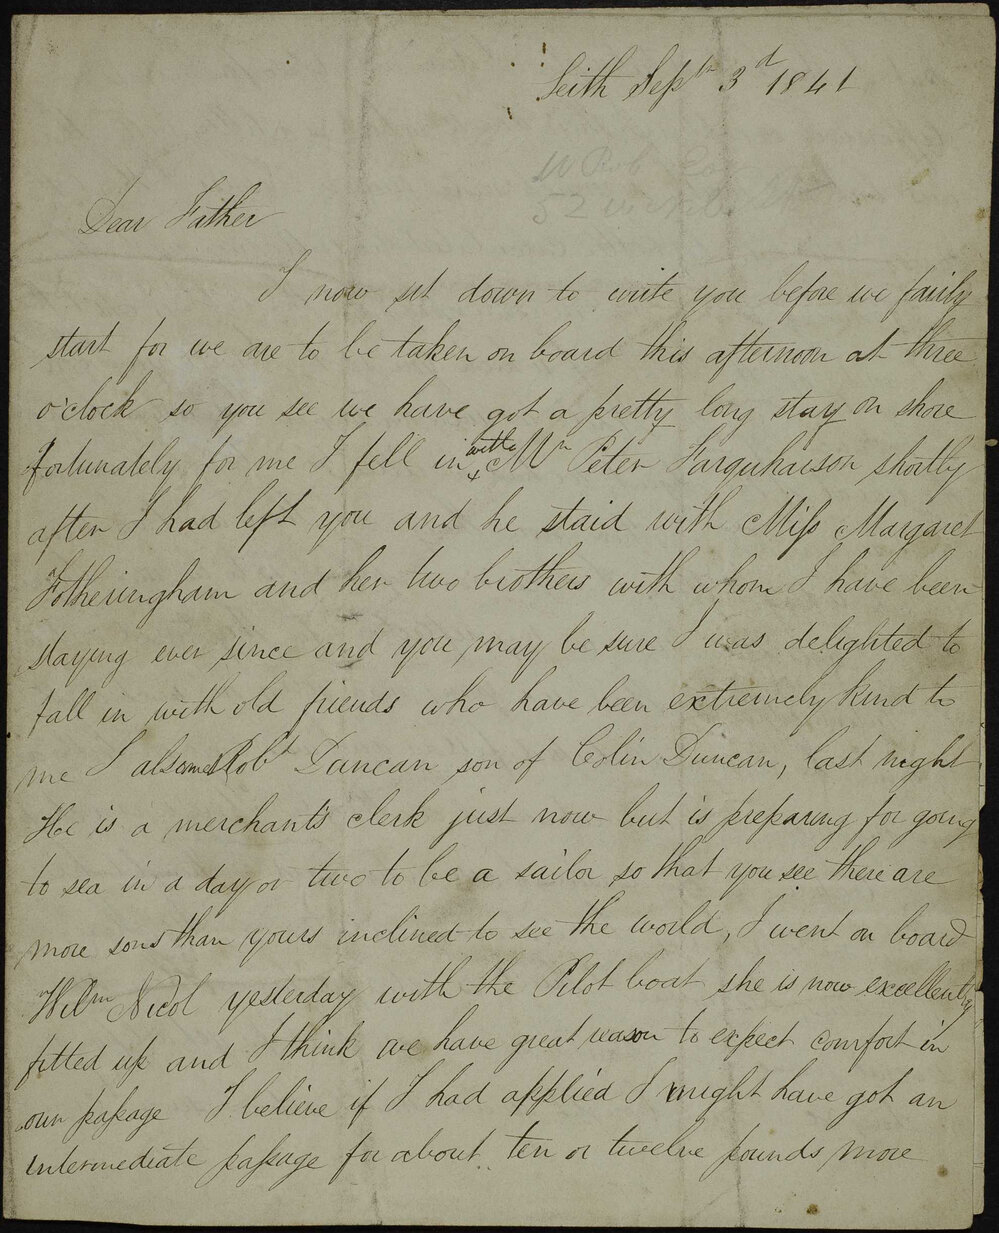 Leith Septr 3d 1841
W Rob
52
Dear Father
I now sit down to write you before we fairly
start for we are to be taken on board this afternoon at three
o'clock so you see we have got a pretty long stay on shore
fortunately for me I fell in with Mr Peter Farquharson shortly
after I had left you and he staid with Miss Margaret
Fotheringham and her two brothers with whom I have been
staying ever since and you may be sure I was delighted to
fall in with old friends who have been extremely kind to
me I also met Robt Duncan son of Colin Duncan, last night
He is a merchants clerk just now but is preparing for going
to sea in a day or two to be a sailor so that you see there are
more sons than yours inclined to see the world, I went on board
Willm Nicol yesterday with the Pilot boat she is now excellently
fitted up and I think we have great reason to expect comfort in
our passage I believe if I had applied I might have got an
intermediate passage for about ten or twelve pounds more